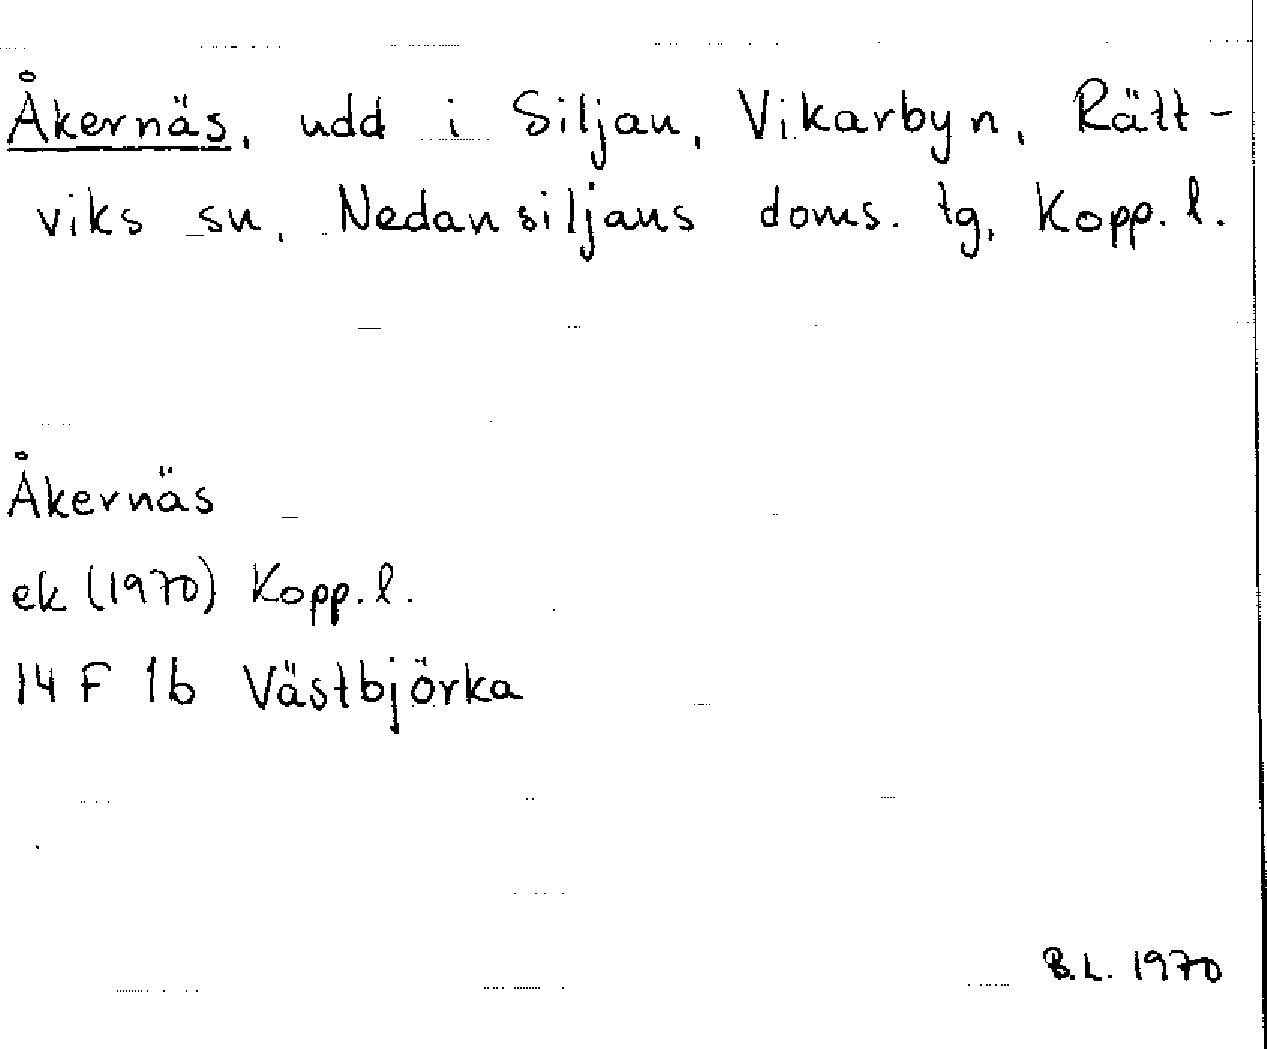 Åkernäs, udd i Siljan, Vikarbyn, Rätt-
viks sn, Nedansiljans doms. tg, Kopp. l.
Åkernäs
ek (1970) Kopp. l.
14 F 1b Västbjörka
B.L. 1970